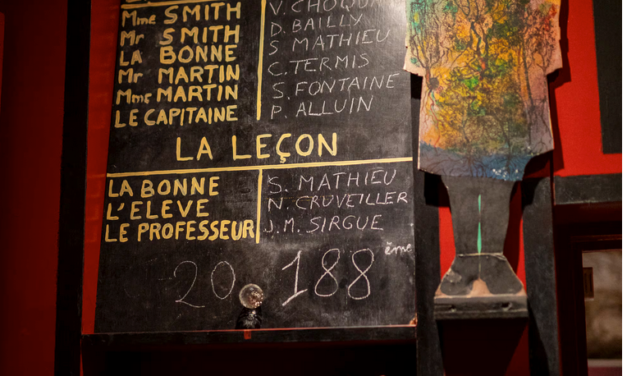 Mme SMITH
Mr SMITH
LA BONNE
Mr MARTIN
Mme MARTIN
LE CAPITAINE
D. BAILLY
S MATHIEU
C. TERMIS
S. FONTAINE
P. ALLUIN
LA LEÇON
LA BONNE
L'ELEVE
LE PROFESSEUR
S. MATHIEU
N. CRUVEILLER
J.M. SIRGUE
20 188 ème